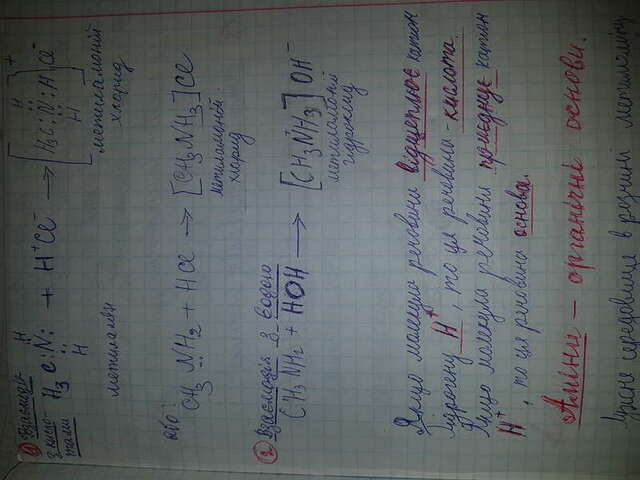 ① Взаємодія
з кисло-
тами
H
H₃C : N : + H⁺Cl⁻ → [H₃C : N : H]⁺ Cl⁻
H
метиламін
метиламоній
хлорид
або:
CH₃NH₂ + HCl → [CH₃NH₃]Cl
метиламоній
хлорид
② Взаємодія з водою
CH₃NH₂ + HOH → [CH₃NH₃]OH⁻
метиламоній
гідроксид
Якщо молекула речовини відщеплює катіон
Гідрогену H⁺, то ця речовина - кислота.
Якщо молекула речовини приєднує катіон
H⁺, то ця речовина основа.
Аміни – органічні основи.
Лужне середовище в розчині